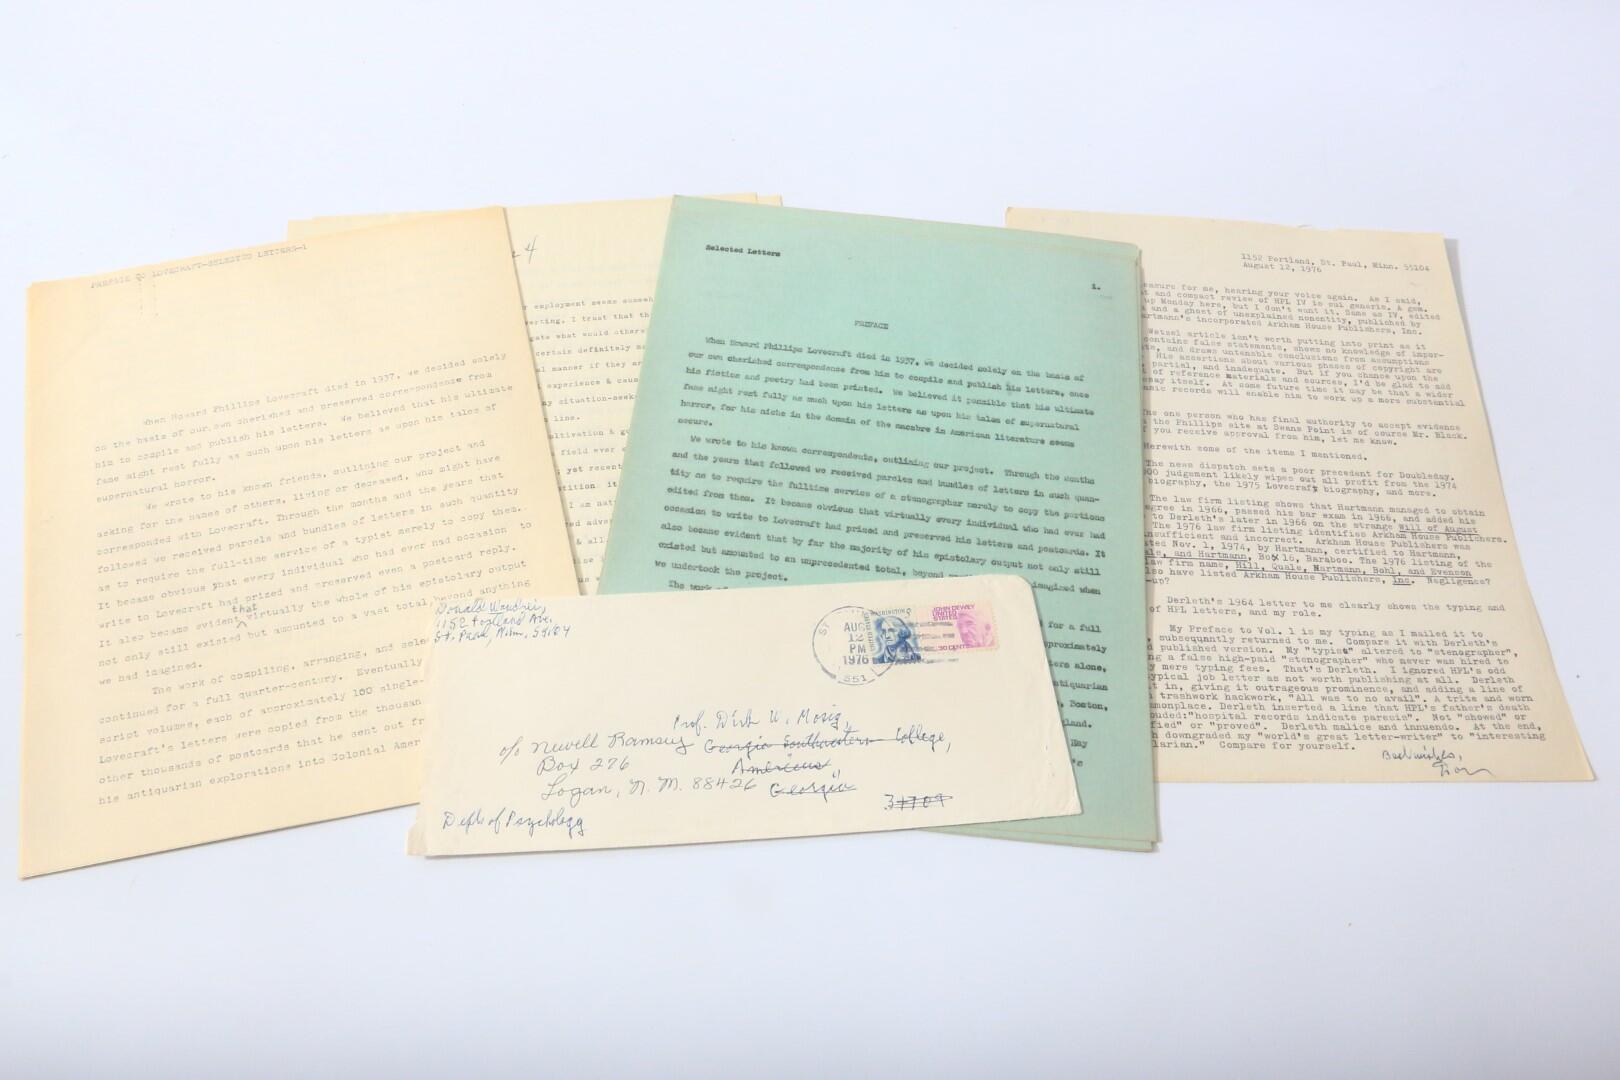 PREFACE TO LOVECRAFT—SELECTED LETTERS—1
When Howard Phillips Lovecraft died in 1937, we decided solely
on the basis of our own cherished and preserved correspondence from
him to compile and publish his letters. We believed that his ultimate
fame might rest fully as much upon his letters as upon his tales of
supernatural horror.
We wrote to his known friends, outlining our project and
asking for the names of others, living or deceased, who might have
corresponded with Lovecraft. Through the months and the years that
followed we received parcels and bundles of letters in such quantity
as to require the full-time service of a typist merely to copy them.
It became obvious that every individual who had ever had occasion to
write to Lovecraft had prized and preserved even a postcard reply.
that
It also became evident virtually the whole of his epistolary output
not only still existed but amounted to a vast total, beyond anything
we had imagined.
The work of compiling, arranging, and sele
continued for a full quarter-century. Eventually
script volumes, each of approximately 100 single-
Lovecraft's letters were copied from the thousan
other thousands of postcards that he sent out fr
his antiquarian explorations into Colonial Amer
4
employment seems someh
verting. I trust that th
gate what would otherw
certain definitely m
l manner if they ar
experience & caus
ny situation-seek-
line.
ltivation & g
field ever
yet recent
tition. it
I am nat
ed adve
& all.
Selected Letters
1.
PREFACE
When Howard Phillips Lovecraft died in 1937, we decided solely on the basis of
our own cherished correspondence from him to compile and publish his letters, once
his fiction and poetry had been printed. We believed it possible that his ultimate
fame might rest fully as much upon his letters as upon his tales of supernatural
horror, for his niche in the domain of the macabre in American literature seems
secure.
We wrote to his known correspondents, outlining our project. Through the months
and the years that followed we received parcels and bundles of letters in such quan-
tity as to require the fulltime service of a stenographer merely to copy the portions
edited from them. It became obvious that virtually every individual who had ever had
occasion to write to Lovecraft had prized and preserved his letters and postcards. It
also became evident that by far the majority of his epistolary output not only still
existed but amounted to an unprecedented total, beyond imagined when
we undertook the project.
The work
for a full
proximately
ters alone,
antiquarian
, Boston,
land.
May
's
1152 Portland, St. Paul, Minn. 55104
August 12, 1976
easure for me, hearing your voice again. As I said,
t and compact review of HPL IV is sui generis. A gem.
up Monday here, but I don't want it. Same as IV, edited
and a ghost of unexplained nonentity, published by
artmann's incorporated Arkham House Publishers, Inc.
Wetzel article isn't worth putting into print as it
contains false statements, shows no knowledge of impor-
ts, and draws untenable conclusions from assumptions
His assertions about various phases of copyright are
partial, and inadequate. But if you chance upon the
t of reference materials and sources, I'd be glad to add
ssay itself. At some future time it may be that a wider
anic records will enable him to work up a more substantial
he one person who has final authority to accept evidence
the Phillips site at Swans Point is of course Mr. Black.
f you receive approval from him, let me know.
Herewith some of the items I mentioned.
The news dispatch sets a poor precedent for Doubleday.
00 judgement likely wipes out all profit from the 1974
biography, the 1975 Lovecraft biography, and more.
The law firm listing shows that Hartmann managed to obtain
egree in 1966, passed his bar exam in 1966, and added his
to Derleth's later in 1966 on the strange Will of August
The 1976 law firm listing identifies Arkham House Publishers.
insufficient and incorrect. Arkham House Publishers was
ted Nov. 1, 1974, by Hartmann, certified to Hartmann,
ale, and Hartmann, Box 16, Baraboo. The 1976 listing of the
law firm name, Hill, Quale, Hartmann, Bohl, and Evenson
lso have listed Arkham House Publishers, Inc. Negligence?
-up?
Derleth's 1964 letter to me clearly shows the typing and
of HPL letters, and my role.
My Preface to Vol. 1 is my typing as I mailed it to
, subsequently returned to me. Compare it with Derleth's
d published version. My "typist" altered to "stenographer",
ng a false high-paid "stenographer" who never was hired to
y mere typing fees. That's Derleth. I ignored HPL's odd
typical job letter as not worth publishing at all. Derleth
t in, giving it outrageous prominence, and adding a line of
trashwork hackwork, "All was to no avail". A trite and worn
mmonplace. Derleth inserted a line that HPL's father's death
ouded:"hospital records indicate paresis". Not "showed" or
fied" or "proved". Derleth malice and innuendo. At the end,
h downgraded my "world's great letter-writer" to "interesting
larian." Compare for yourself.
Best wishes,
Don
Donald Wandrei,
1152 Portland Ave.
St. Paul, Minn, 55104
ST
AUG
12
PM
1976
551
WASHINGTON
UNITED STATES
JOHN DEWEY
UNITED
STATES
30 CENTS
Prof. Dirk W. Mosig,
c/o Newell Ramsey Georgia Southwestern College,
Box 276 Americus
Logan, N.M. 88426 Georgia
31709
Dept of Psychology